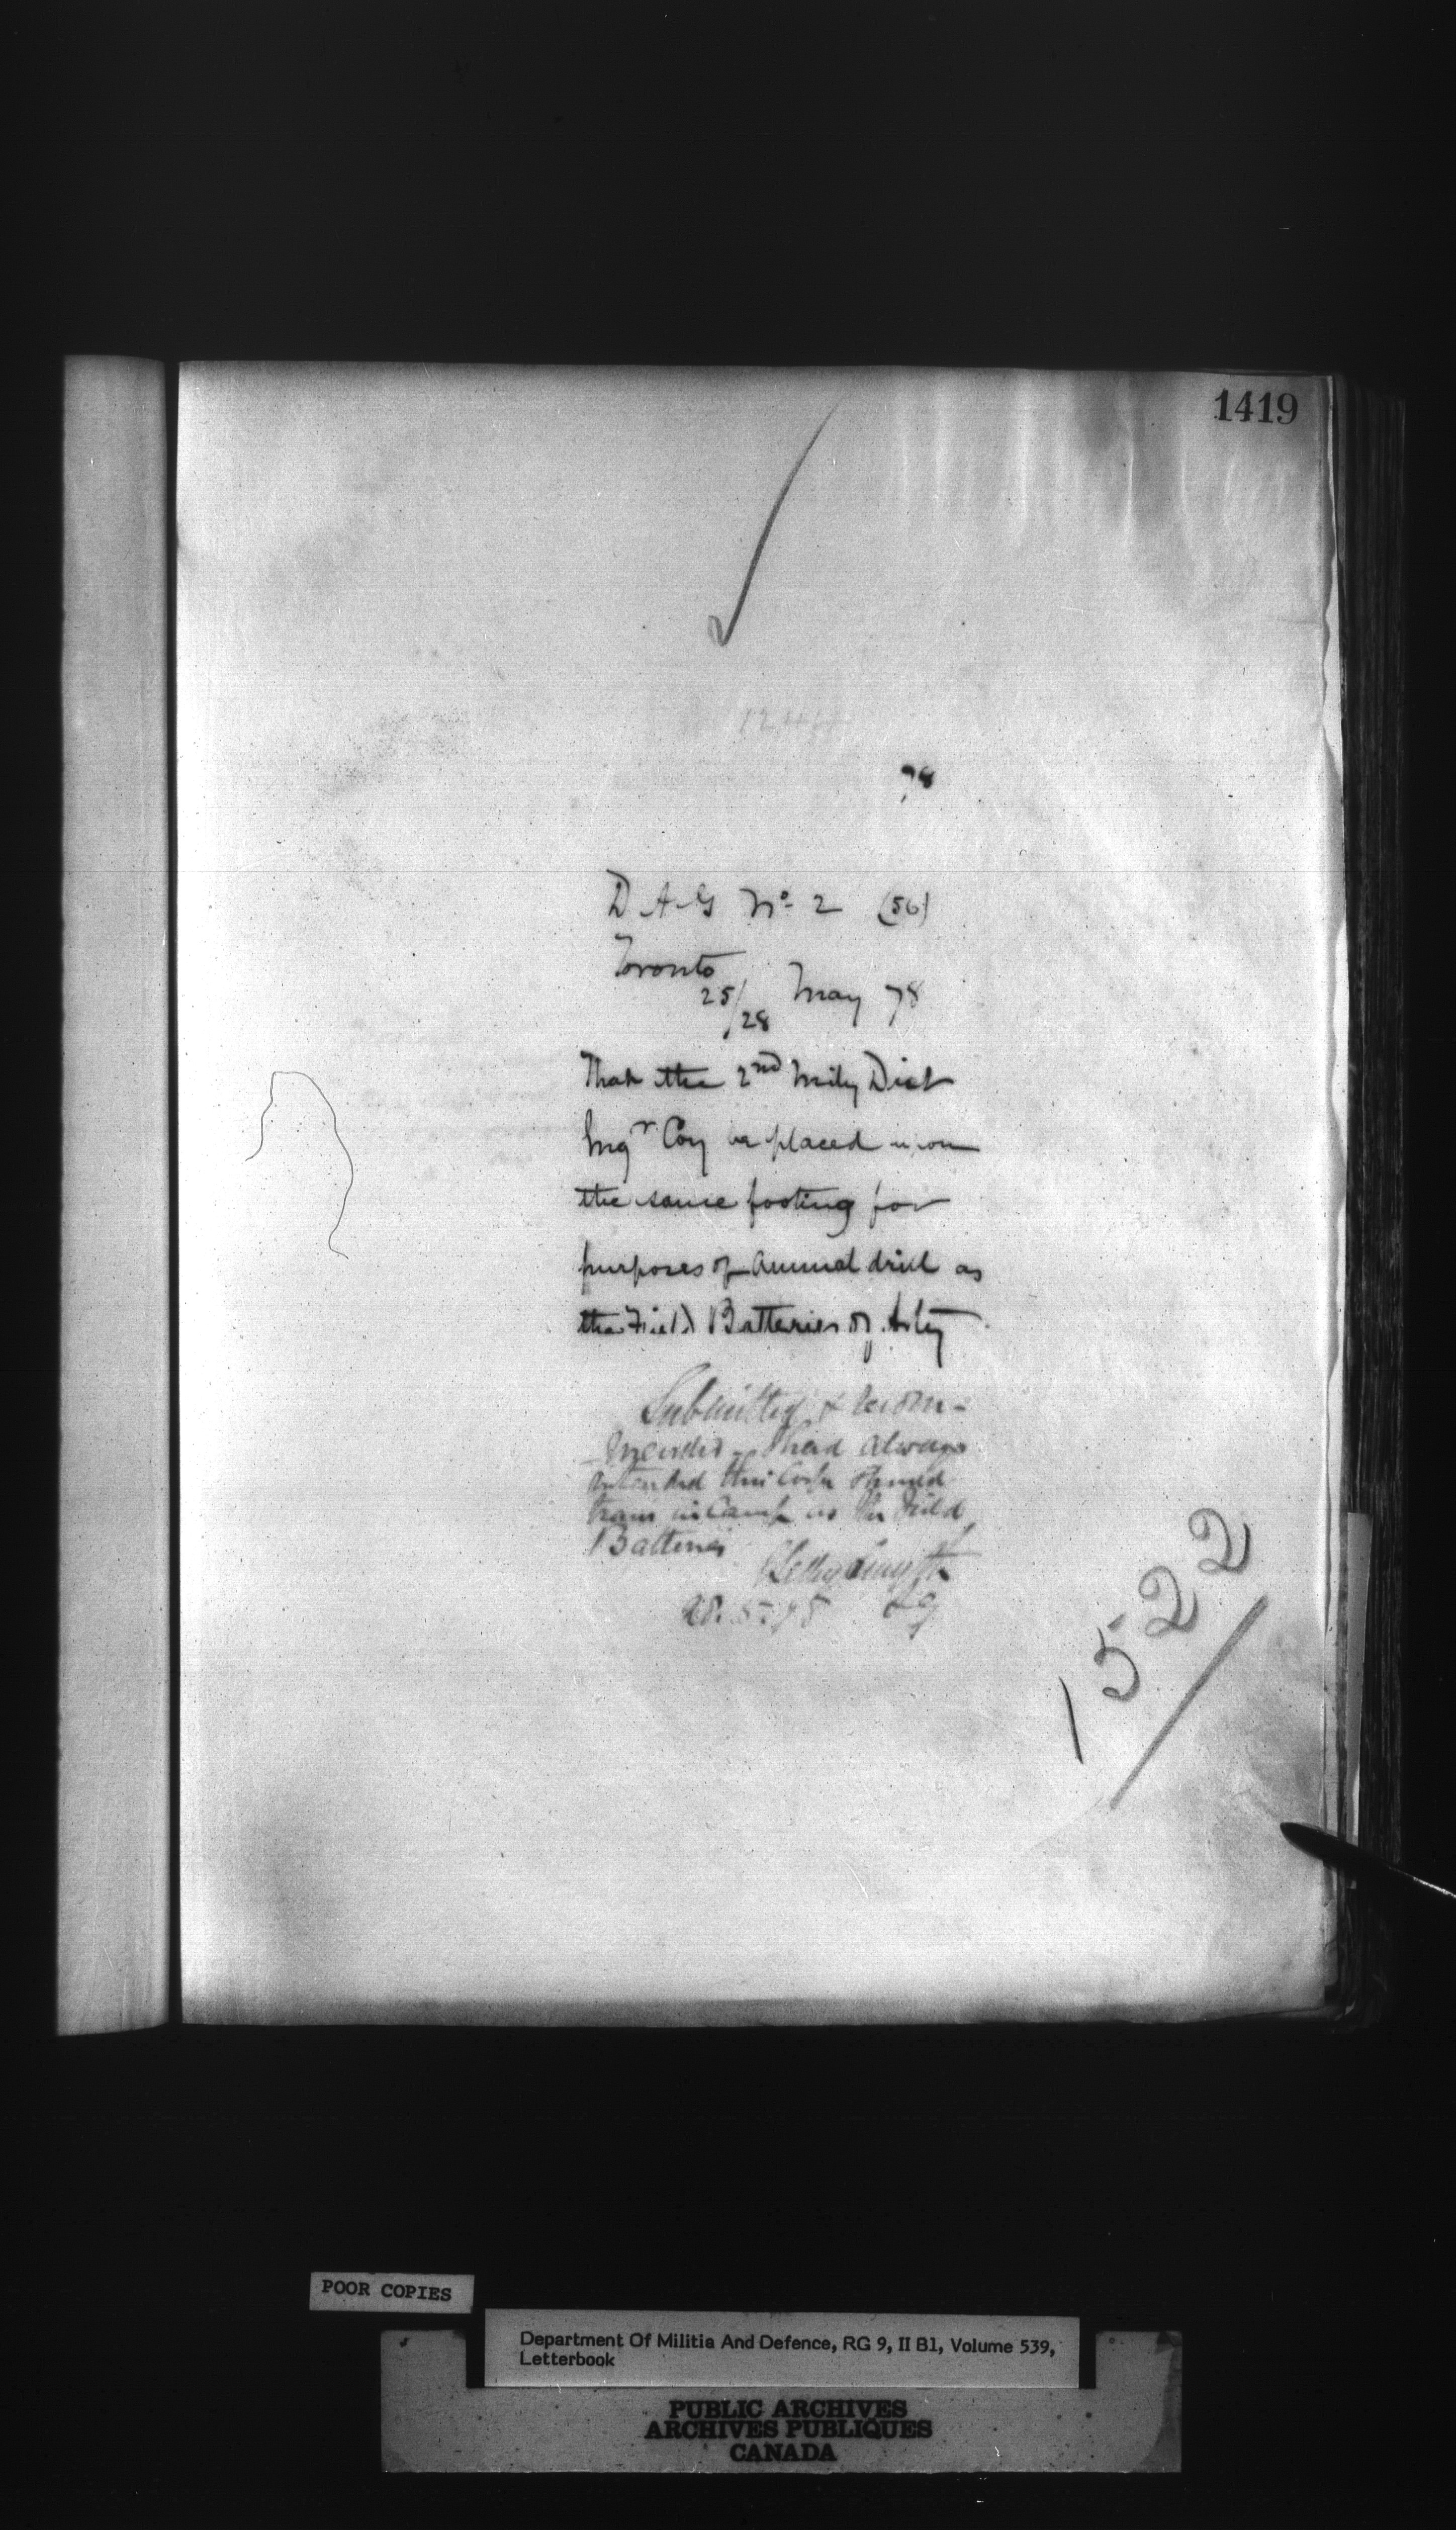 1419
78
D A G No 2 (56)
Toronto
25/28 May 78
That the 2nd Mily Dist
Engr Coy be placed upon
the same footing for
purposes of annual drill as
the Field Batteries of Arty
Submitted & recom-
mended I had always
intended this Corps should
train in Camp as the Field
Batteries
Selby Smyth
28.5.78 LG
1522
POOR COPIES
Department Of Militia And Defence, RG 9, II B1, Volume 539,
Letterbook
PUBLIC ARCHIVES
ARCHIVES PUBLIQUES
CANADA